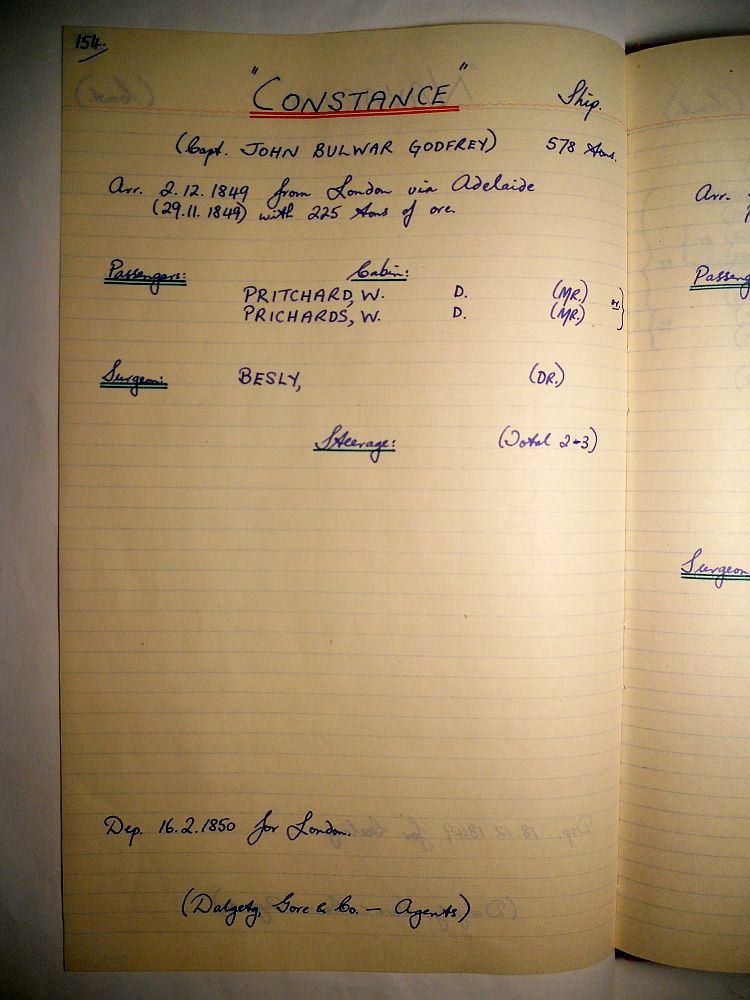 154.
"CONSTANCE" Ship.
(Capt. JOHN BULWAR GODFREY) 578 tons.
Arr. 2.12.1849 from London via Adelaide
(29.11.1849) with 225 tons of ore.
Passengers: Cabin:
PRITCHARD, W. D. (MR.)
PRICHARDS, W. D. (MR.) or.
Surgeon: BESLY, (DR.)
Steerage: (Total 2+3)
Dep. 16.2.1850 for London.
(Dalgety, Gore & Co. — Agents)
Arr.
Passeng
Surgeon